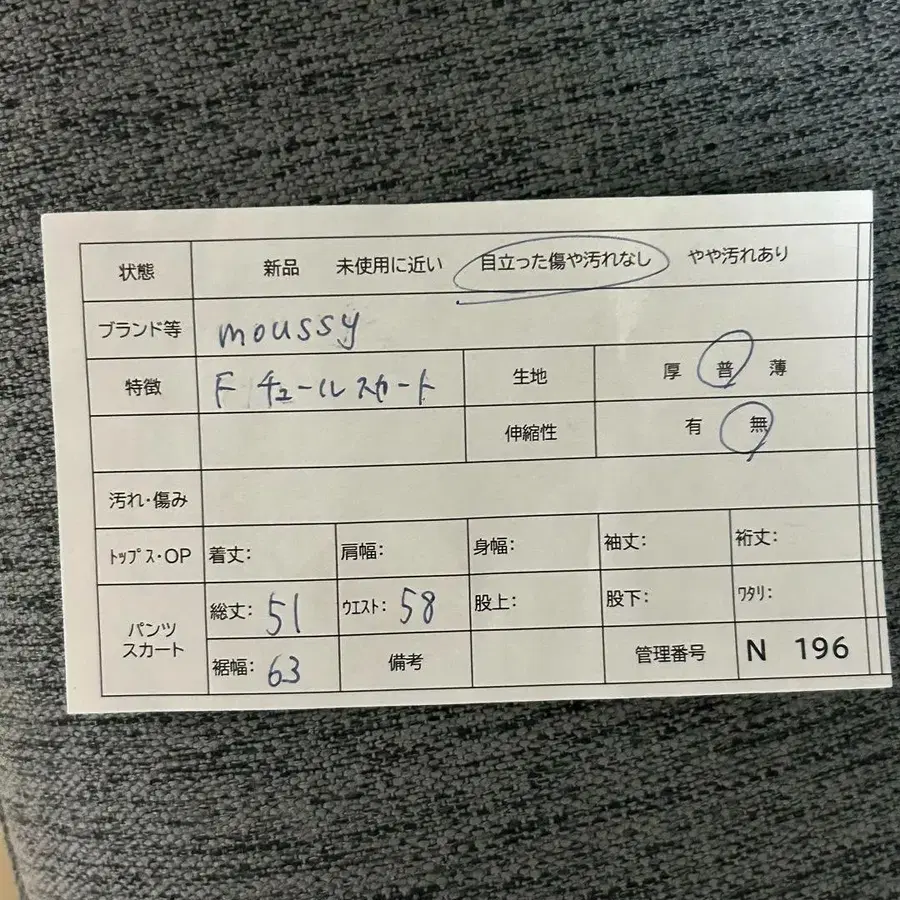 状態 新品 未使用に近い 目立った傷や汚れなし やや汚れあり
ブランド等 moussy
特徴 F チュールスカート 生地 厚 普 薄
伸縮性 有 無
汚れ・傷み
トップス・OP 着丈: 肩幅: 身幅: 袖丈: 裄丈:
パンツ スカート 総丈: 51 ウエスト: 58 股上: 股下: ワタリ:
裾幅: 63 備考 管理番号 N 196